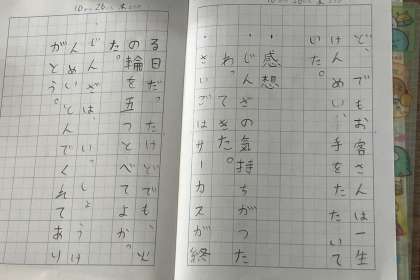 ど、でもお客さんは一生
けんめい、手をたたいて
いた。
・感想
じんざの気持ちがつた
わってきた。
・さいごはサーカスが終
る日だ。たけどでも、火
の輪を五つとべてよかっ
た。
じんざは、いっしょうけ
んめいとんでくれてあり
がとう。